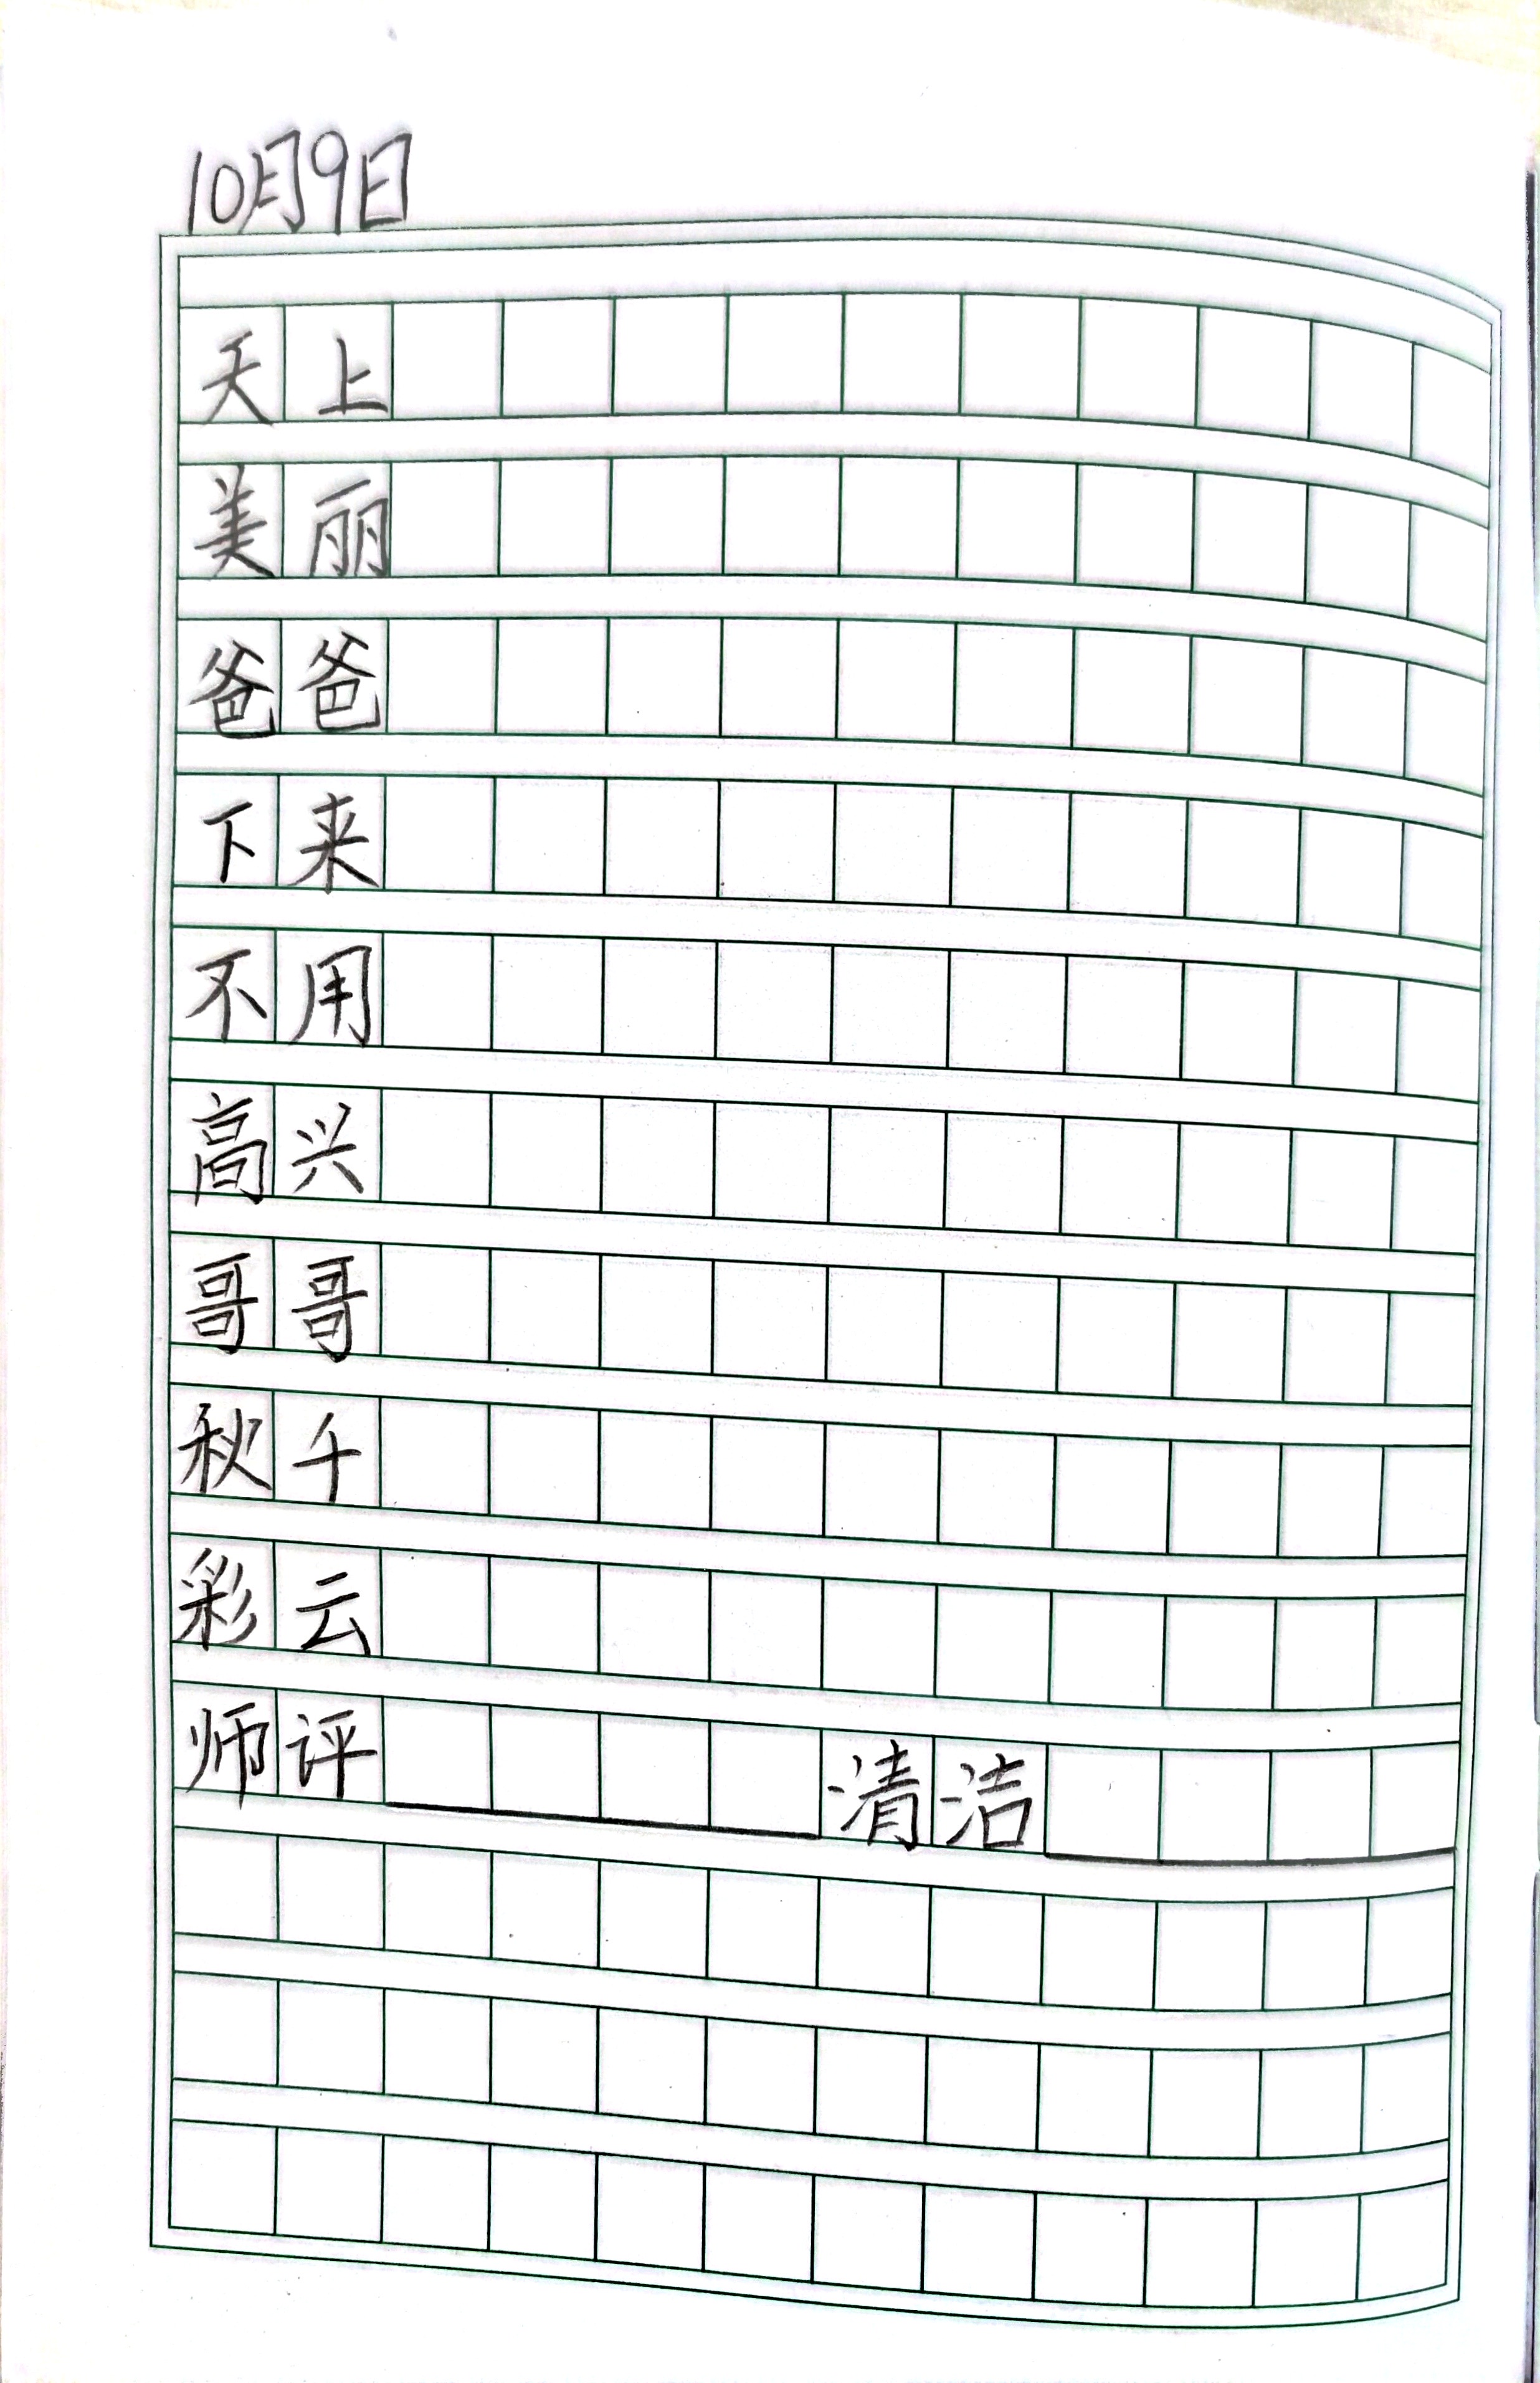 10月9日
天上
美丽
爸爸
下来
不用
高兴
哥哥
秋千
彩云
师评 清洁